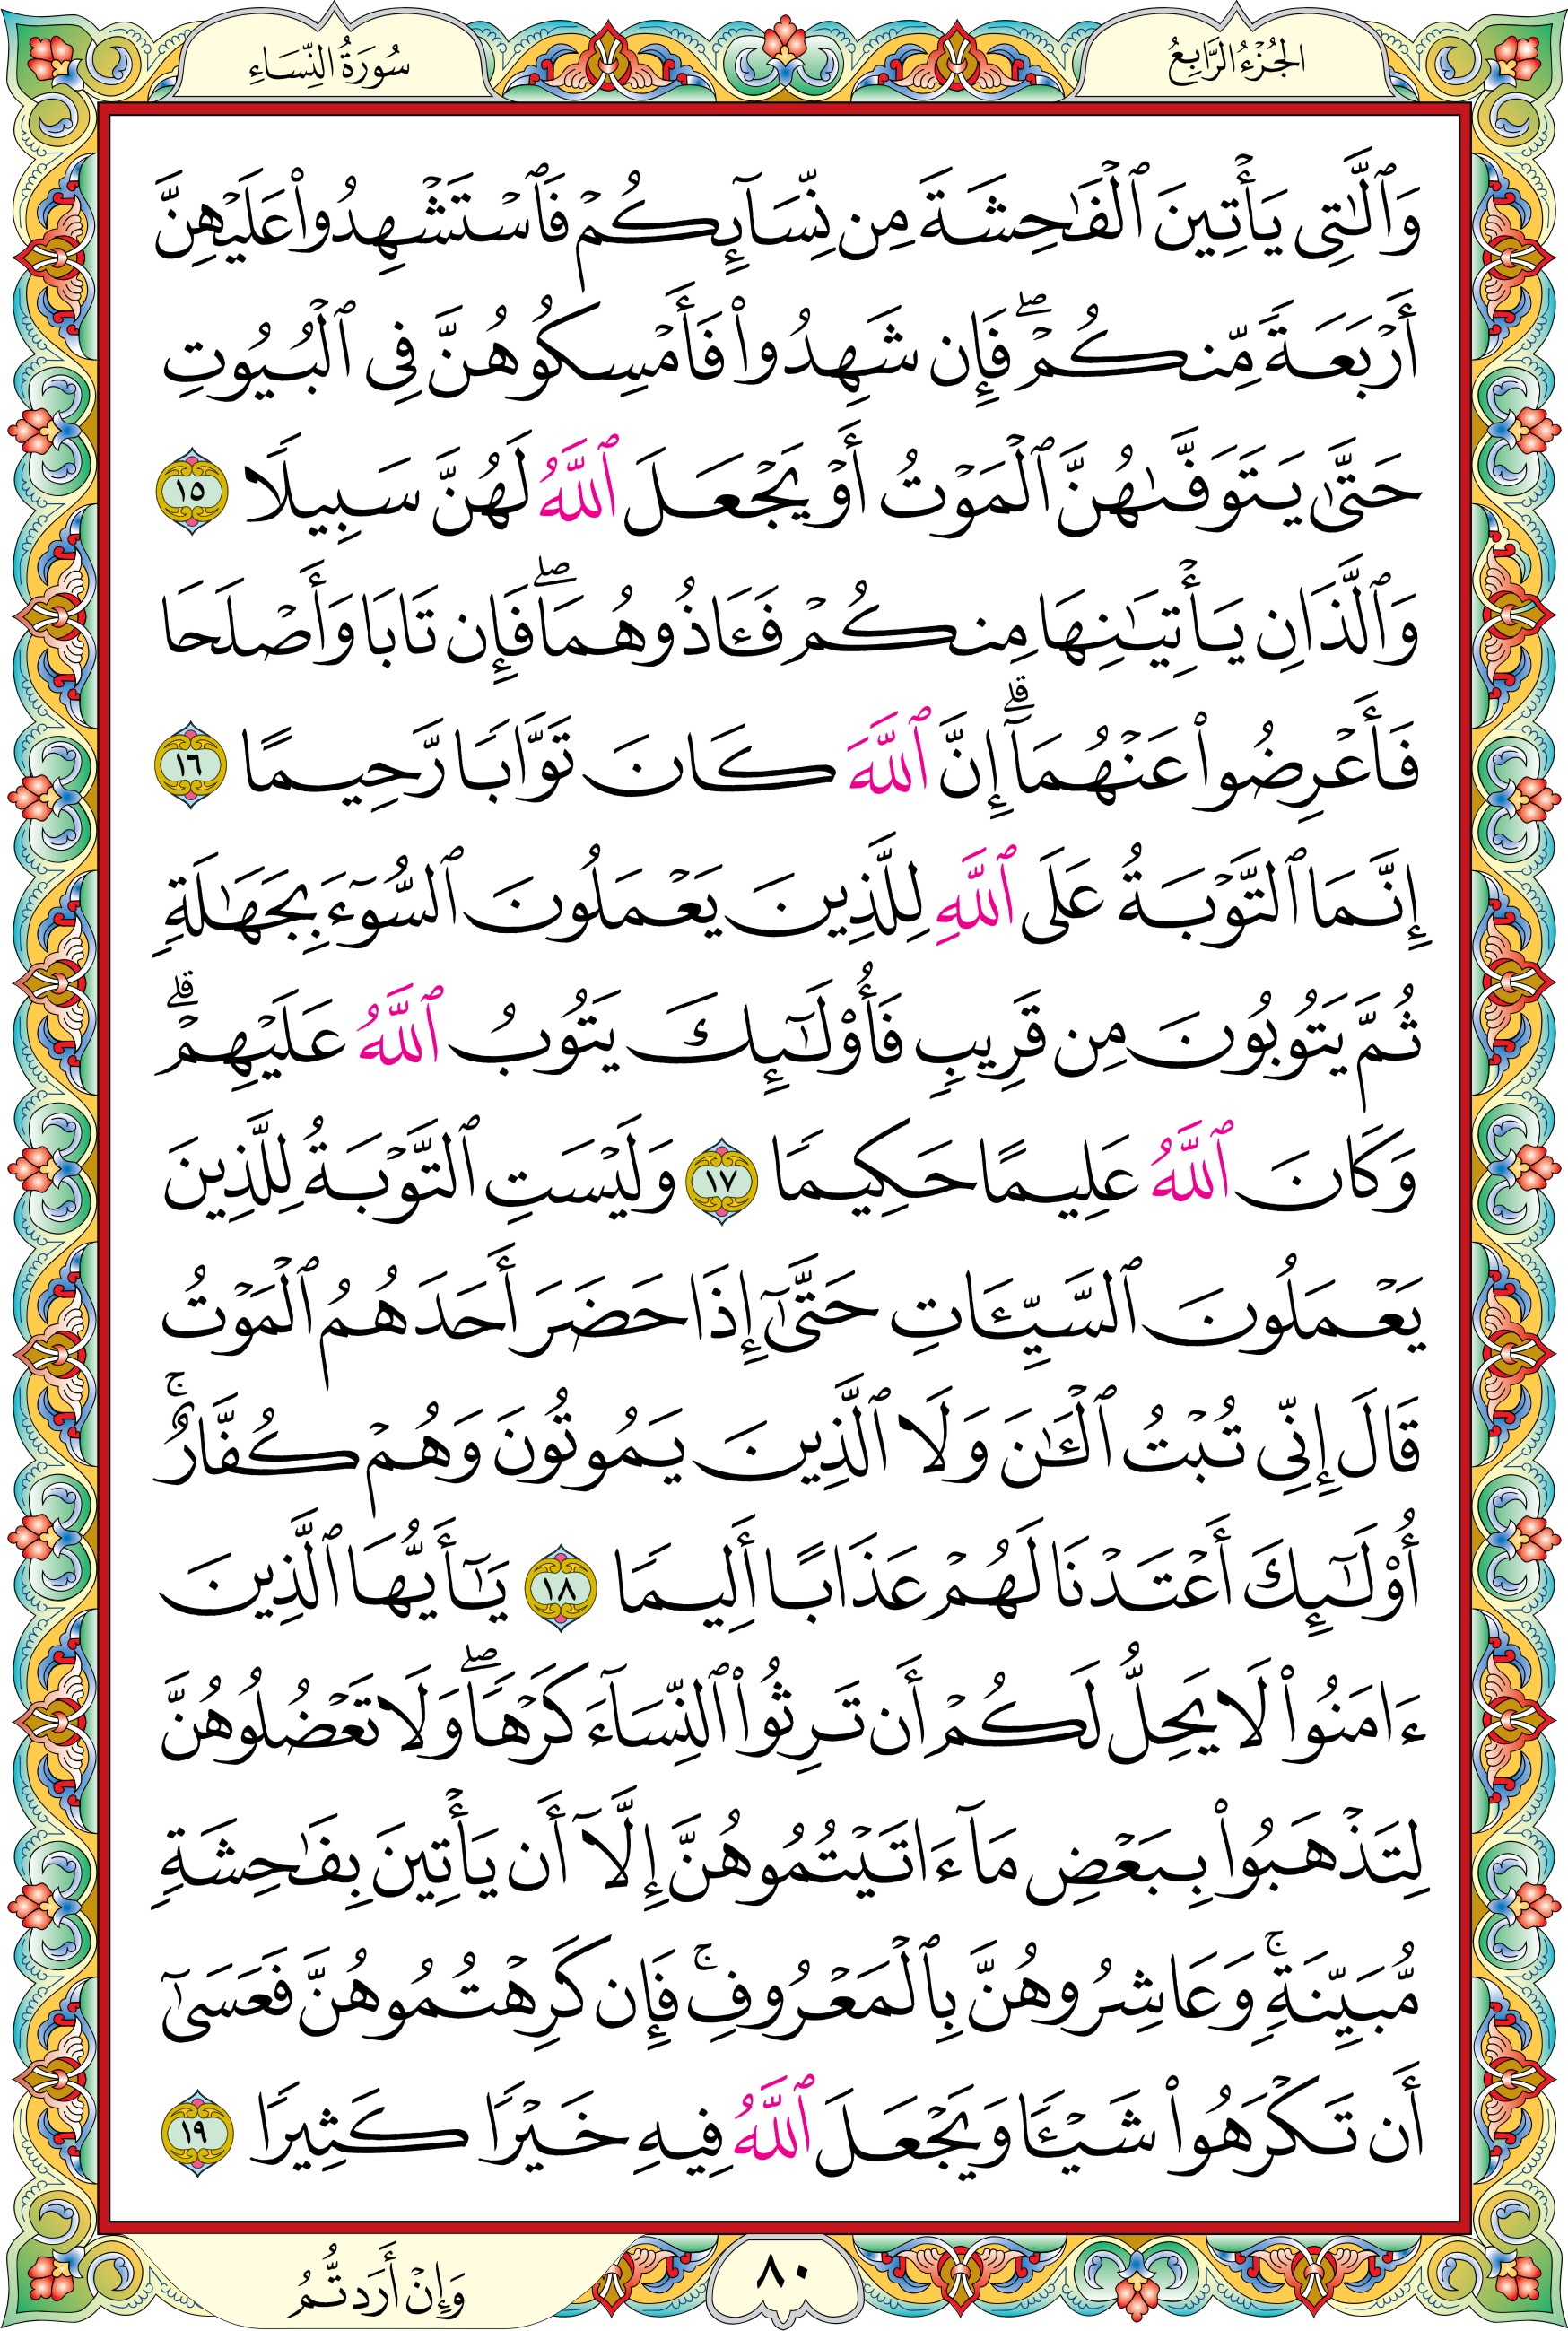 الجُزْءُ الرَّابِعُ
سُورَةُ النِّسَاءِ
وَٱلَّٰتِي يَأۡتِينَ ٱلۡفَٰحِشَةَ مِن نِّسَآئِكُمۡ فَٱسۡتَشۡهِدُواْ عَلَيۡهِنَّ
أَرۡبَعَةٗ مِّنكُمۡۖ فَإِن شَهِدُواْ فَأَمۡسِكُوهُنَّ فِي ٱلۡبُيُوتِ
حَتَّىٰ يَتَوَفَّىٰهُنَّ ٱلۡمَوۡتُ أَوۡ يَجۡعَلَ ٱللَّهُ لَهُنَّ سَبِيلٗا ١٥
وَٱلَّذَانِ يَأۡتِيَٰنِهَا مِنكُمۡ فَـَٔاذُوهُمَاۖ فَإِن تَابَا وَأَصۡلَحَا
فَأَعۡرِضُواْ عَنۡهُمَآۗ إِنَّ ٱللَّهَ كَانَ تَوَّابٗا رَّحِيمًا ١٦
إِنَّمَا ٱلتَّوۡبَةُ عَلَى ٱللَّهِ لِلَّذِينَ يَعۡمَلُونَ ٱلسُّوٓءَ بِجَهَٰلَةٖ
ثُمَّ يَتُوبُونَ مِن قَرِيبٖ فَأُوْلَٰٓئِكَ يَتُوبُ ٱللَّهُ عَلَيۡهِمۡۗ
وَكَانَ ٱللَّهُ عَلِيمًا حَكِيمٗا ١٧ وَلَيۡسَتِ ٱلتَّوۡبَةُ لِلَّذِينَ
يَعۡمَلُونَ ٱلسَّيِّـَٔاتِ حَتَّىٰٓ إِذَا حَضَرَ أَحَدَهُمُ ٱلۡمَوۡتُ
قَالَ إِنِّي تُبۡتُ ٱلۡـَٰٔنَ وَلَا ٱلَّذِينَ يَمُوتُونَ وَهُمۡ كُفَّارٌۚ
أُوْلَٰٓئِكَ أَعۡتَدۡنَا لَهُمۡ عَذَابًا أَلِيمٗا ١٨ يَٰٓأَيُّهَا ٱلَّذِينَ
ءَامَنُواْ لَا يَحِلُّ لَكُمۡ أَن تَرِثُواْ ٱلنِّسَآءَ كَرۡهٗاۖ وَلَا تَعۡضُلُوهُنَّ
لِتَذۡهَبُواْ بِبَعۡضِ مَآ ءَاتَيۡتُمُوهُنَّ إِلَّآ أَن يَأۡتِينَ بِفَٰحِشَةٖ
مُّبَيِّنَةٖۚ وَعَاشِرُوهُنَّ بِٱلۡمَعۡرُوفِۚ فَإِن كَرِهۡتُمُوهُنَّ فَعَسَىٰٓ
أَن تَكۡرَهُواْ شَيۡـٔٗا وَيَجۡعَلَ ٱللَّهُ فِيهِ خَيۡرٗا كَثِيرٗا ١٩
٨٠
وَإِنۡ أَرَدتُّمُ